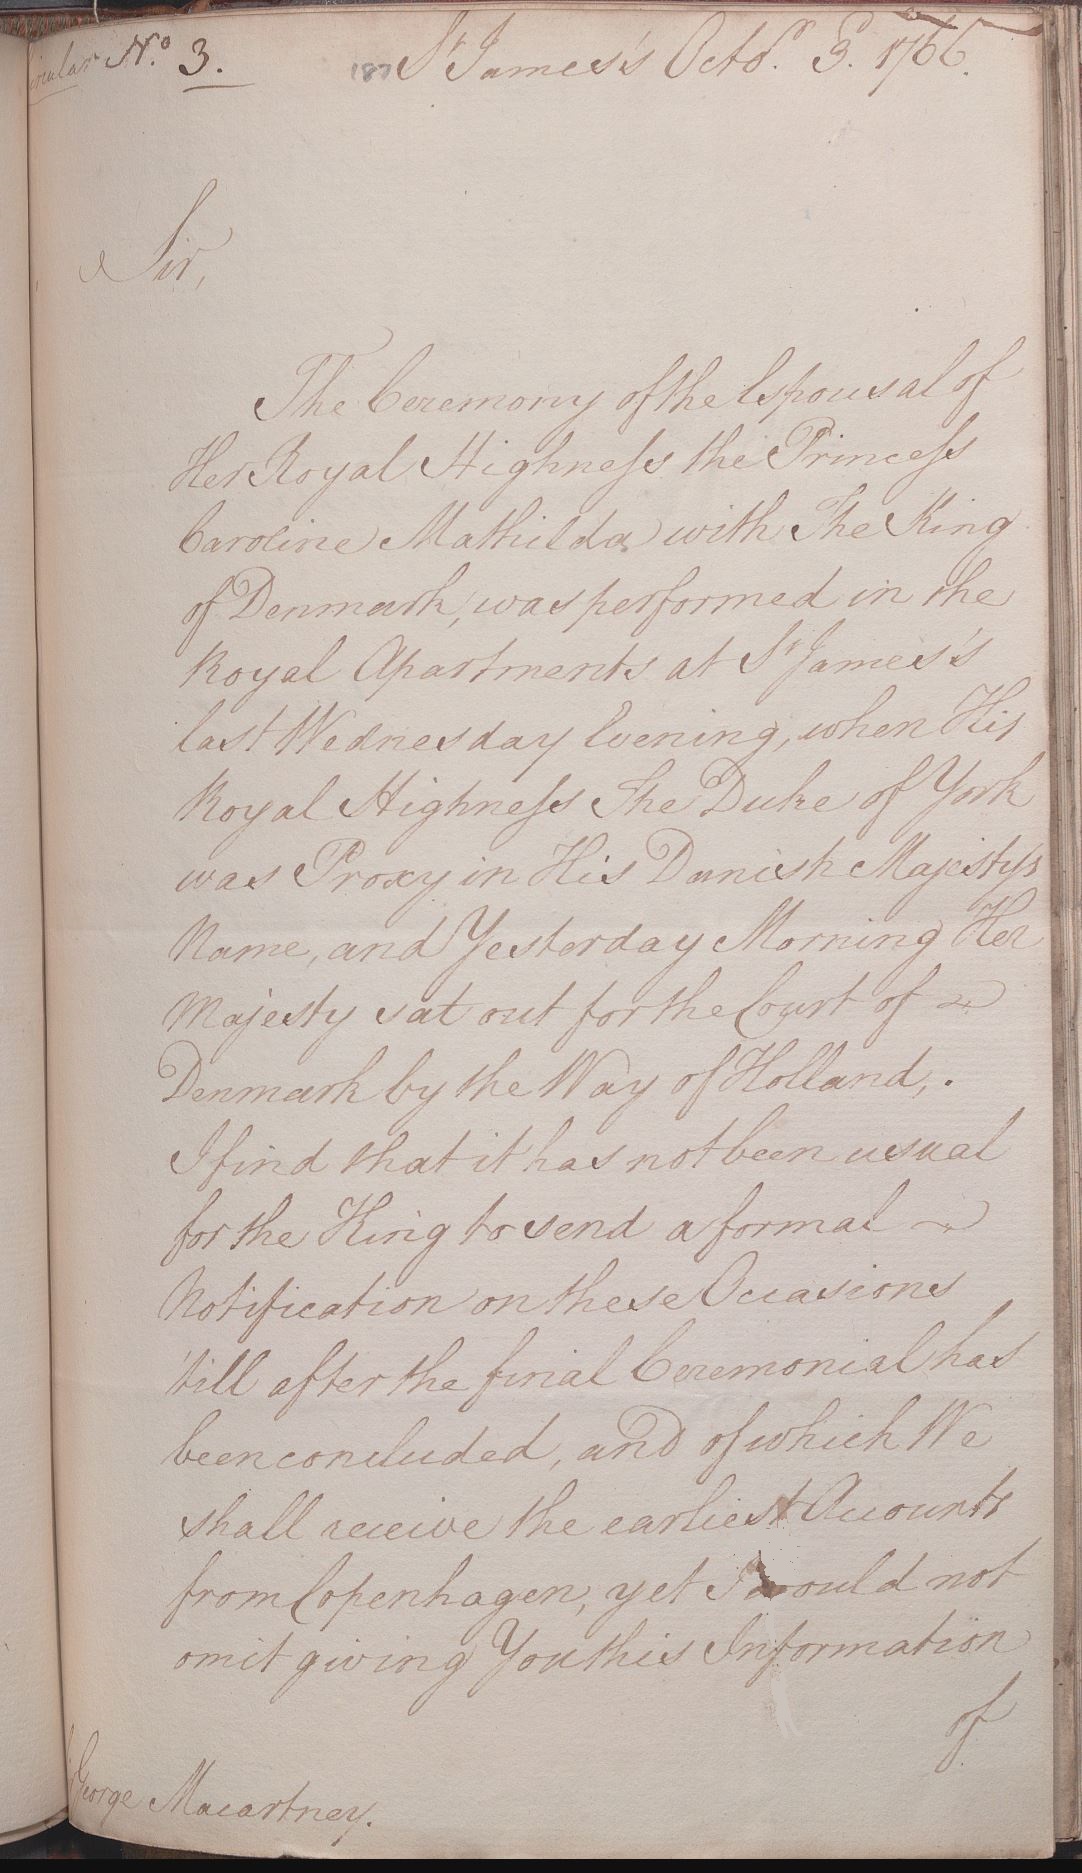 Circular N.o 3.
187 St James's Octo.r 3. 1766.
Sir,
The Ceremony of the Espousal of
Her Royal Highness the Princess
Caroline Mathilda with The King
of Denmark, was performed in the
Royal Apartments at St James's
last Wednesday Evening, when His
Royal Highness The Duke of York
was Proxy in His Danish Majesty's
Name, and Yesterday Morning Her
Majesty sat out for the Court of
Denmark by the Way of Holland,.
I find that it has not been usual
for the King to send a formal
Notification on these Occasions
'till after the final Ceremonial has
been concluded, and of which We
shall receive the earliest Accounts
from Copenhagen, yet I would not
omit giving You this Information
of
George Macartney.